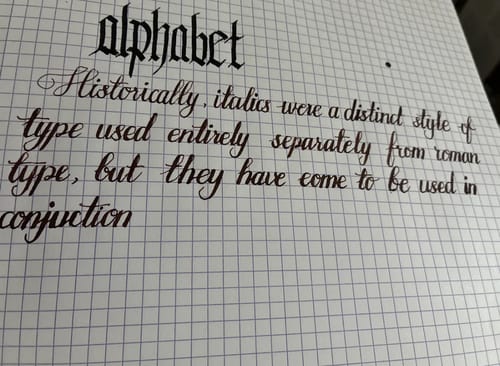 alphabet
Historically, italics were a distinct style of
type used entirely separately from roman
type, but they have come to be used in
conjuction